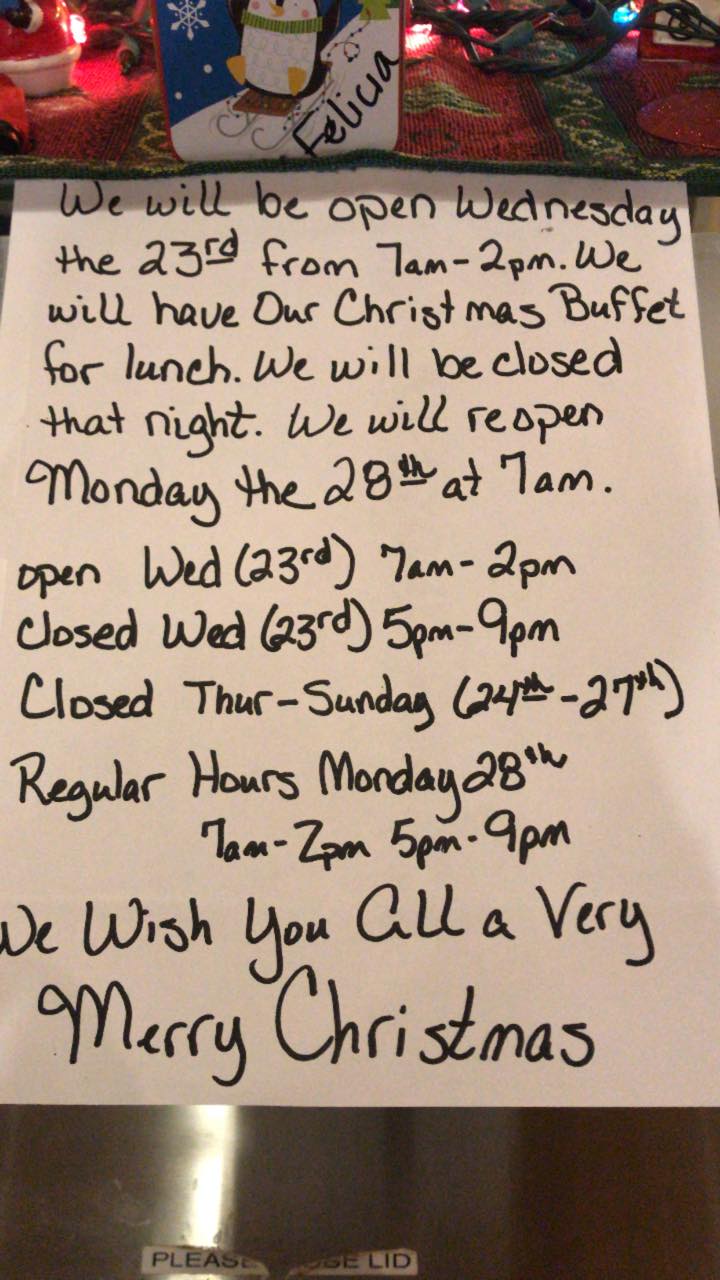 Felicia
We will be open Wednesday
the 23rd from 7am-2pm. We
will have Our Christmas Buffet
for lunch. We will be closed
that night. We will reopen
Monday the 28th at 7am.
open Wed (23rd) 7am-2pm
Closed Wed (23rd) 5pm-9pm
Closed Thur-Sunday (24th-27th)
Regular Hours Monday 28th
7am-2pm 5pm-9pm
We Wish You All a Very
Merry Christmas
PLEASE LID